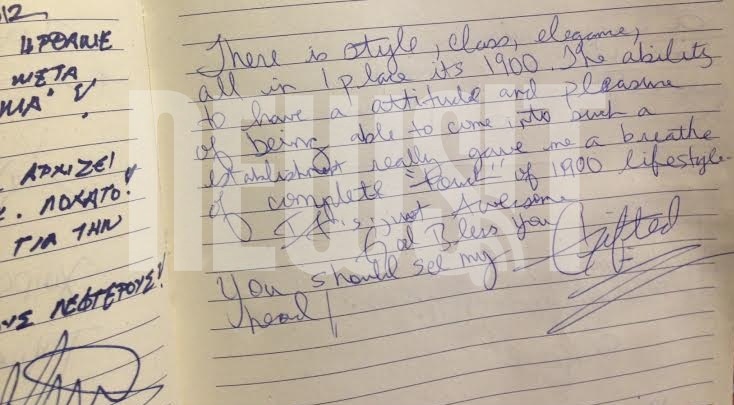 012
ΠΡΟΛΑΒΕ
ΜΕΤΑ
ΜΙΑ
ΑΡΧΙΖΕΙ
ΓΙΑ ΤΗΝ
There is style, class, elegance,
all in 1 place its 1900. The ability
to have a attitude and pleasure
of being able to come into such a
establishment really gave me a breathe
of complete "Power" of 1900 lifestyle.
It is just Awesome
God Bless you
You should see my Gifted
head!
NEWSIT